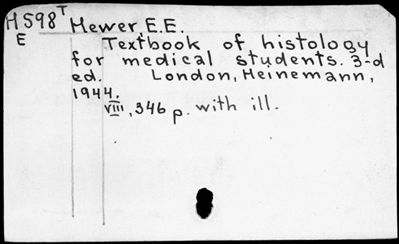 H598ᵀ Hewer, E.E.
E Textbook of histology
for medical students. 3-d
ed. London, Heinemann,
1944.
VIII, 346 p. with ill.